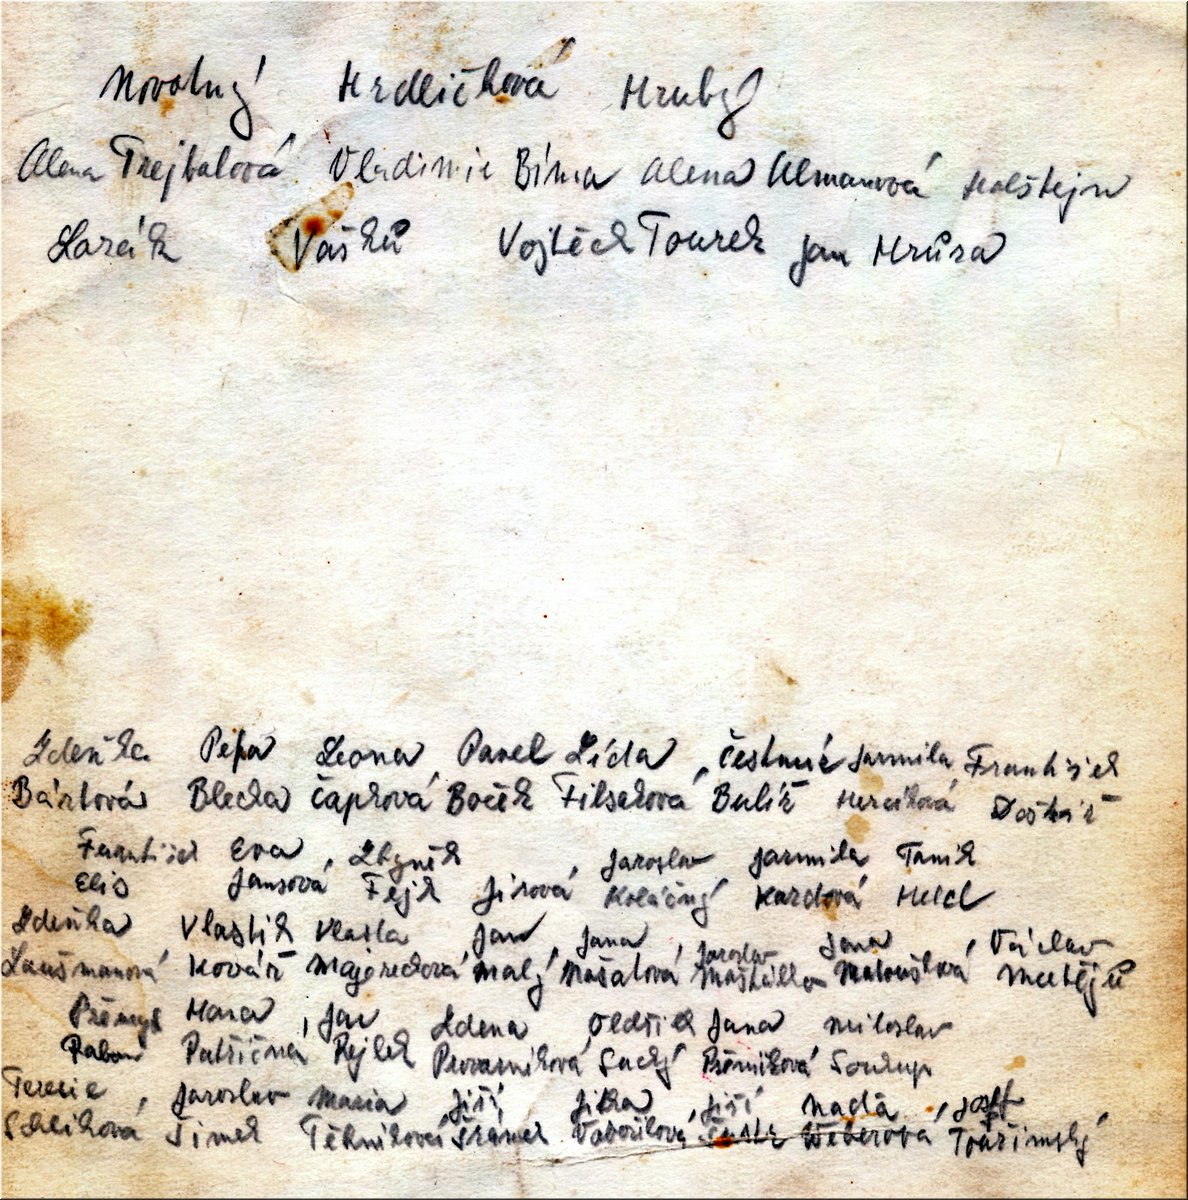 Novotný Hrdličková Hrubý
Alena Trejbalová Vladimir Bíma Alena Almanová Holštejn
Lorák Vašků Vojtěch Tourek Jan Hrůza
Zdeňka Pepa Ilona Pavel Lída, Čestmír Jarmila František
Bártová Blecha Čapková Boček Filsaková Bulíř Hercíková Doškář
František Eva, Zbyněk Jaroslav Jarmila Tomik
Elis Jansová Fejk Jírová Koláčný Kurdová Held
Zdeňka Vlastik Vlasta Jan, Jana, Jaroslav Jana, Václav
Laušmanová Kovář Majerechová Malý Mašatová Maštálka Matoušková Matějů
Hana, Jan Zdena Oldřich Jana Miloslav
Patřičná Rejlek Provazníková Suchý Soukup
Terezie, Jaroslav Maria Jiří Jitka, Jiří Naďa, Josef
Schliková Šimek Těhníková Šrámek Vabořilová Weberová Touřimský